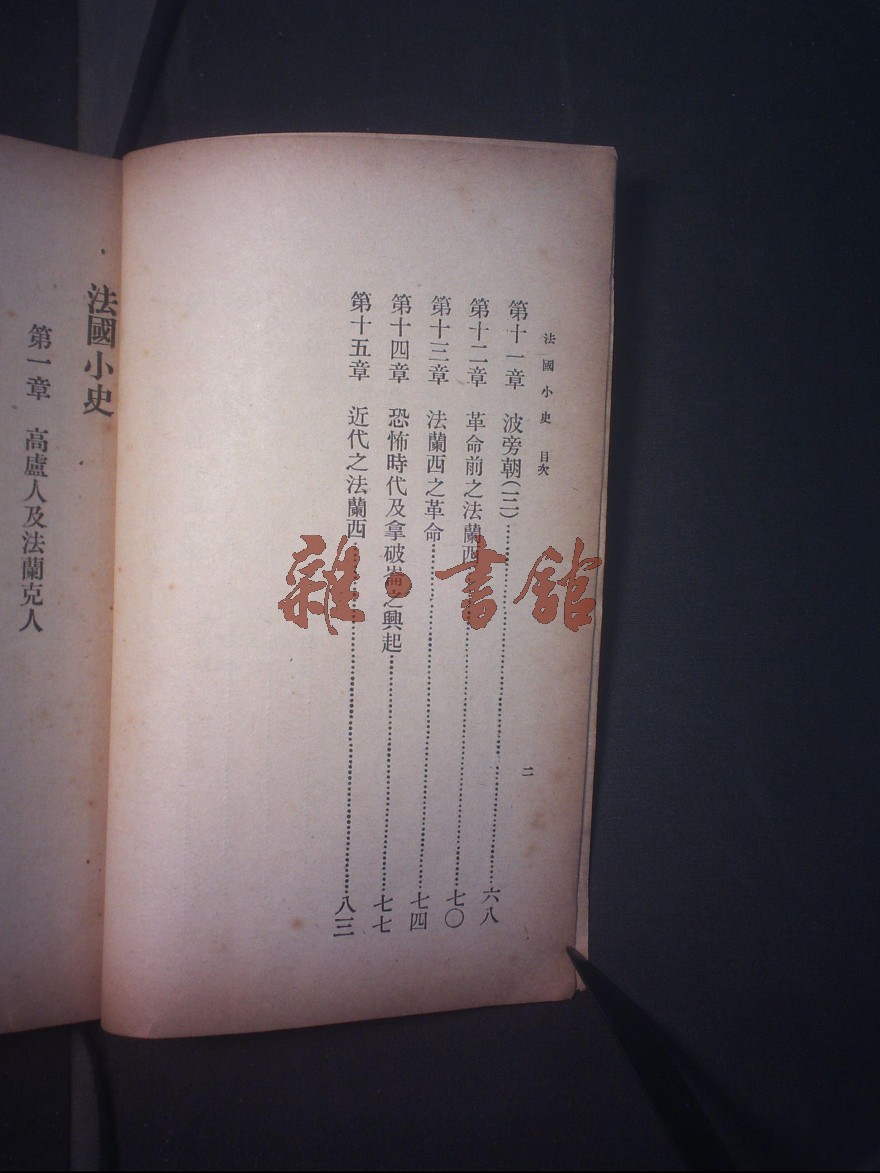 法國小史 目次 二
第十一章 波旁朝(三)……六八
第十二章 革命前之法蘭西……七〇
第十三章 法蘭西之革命……七四
第十四章 恐怖時代及拿破崙之興起……七七
第十五章 近代之法蘭西……八三
法國小史
第一章 高盧人及法蘭克人
雜·書館